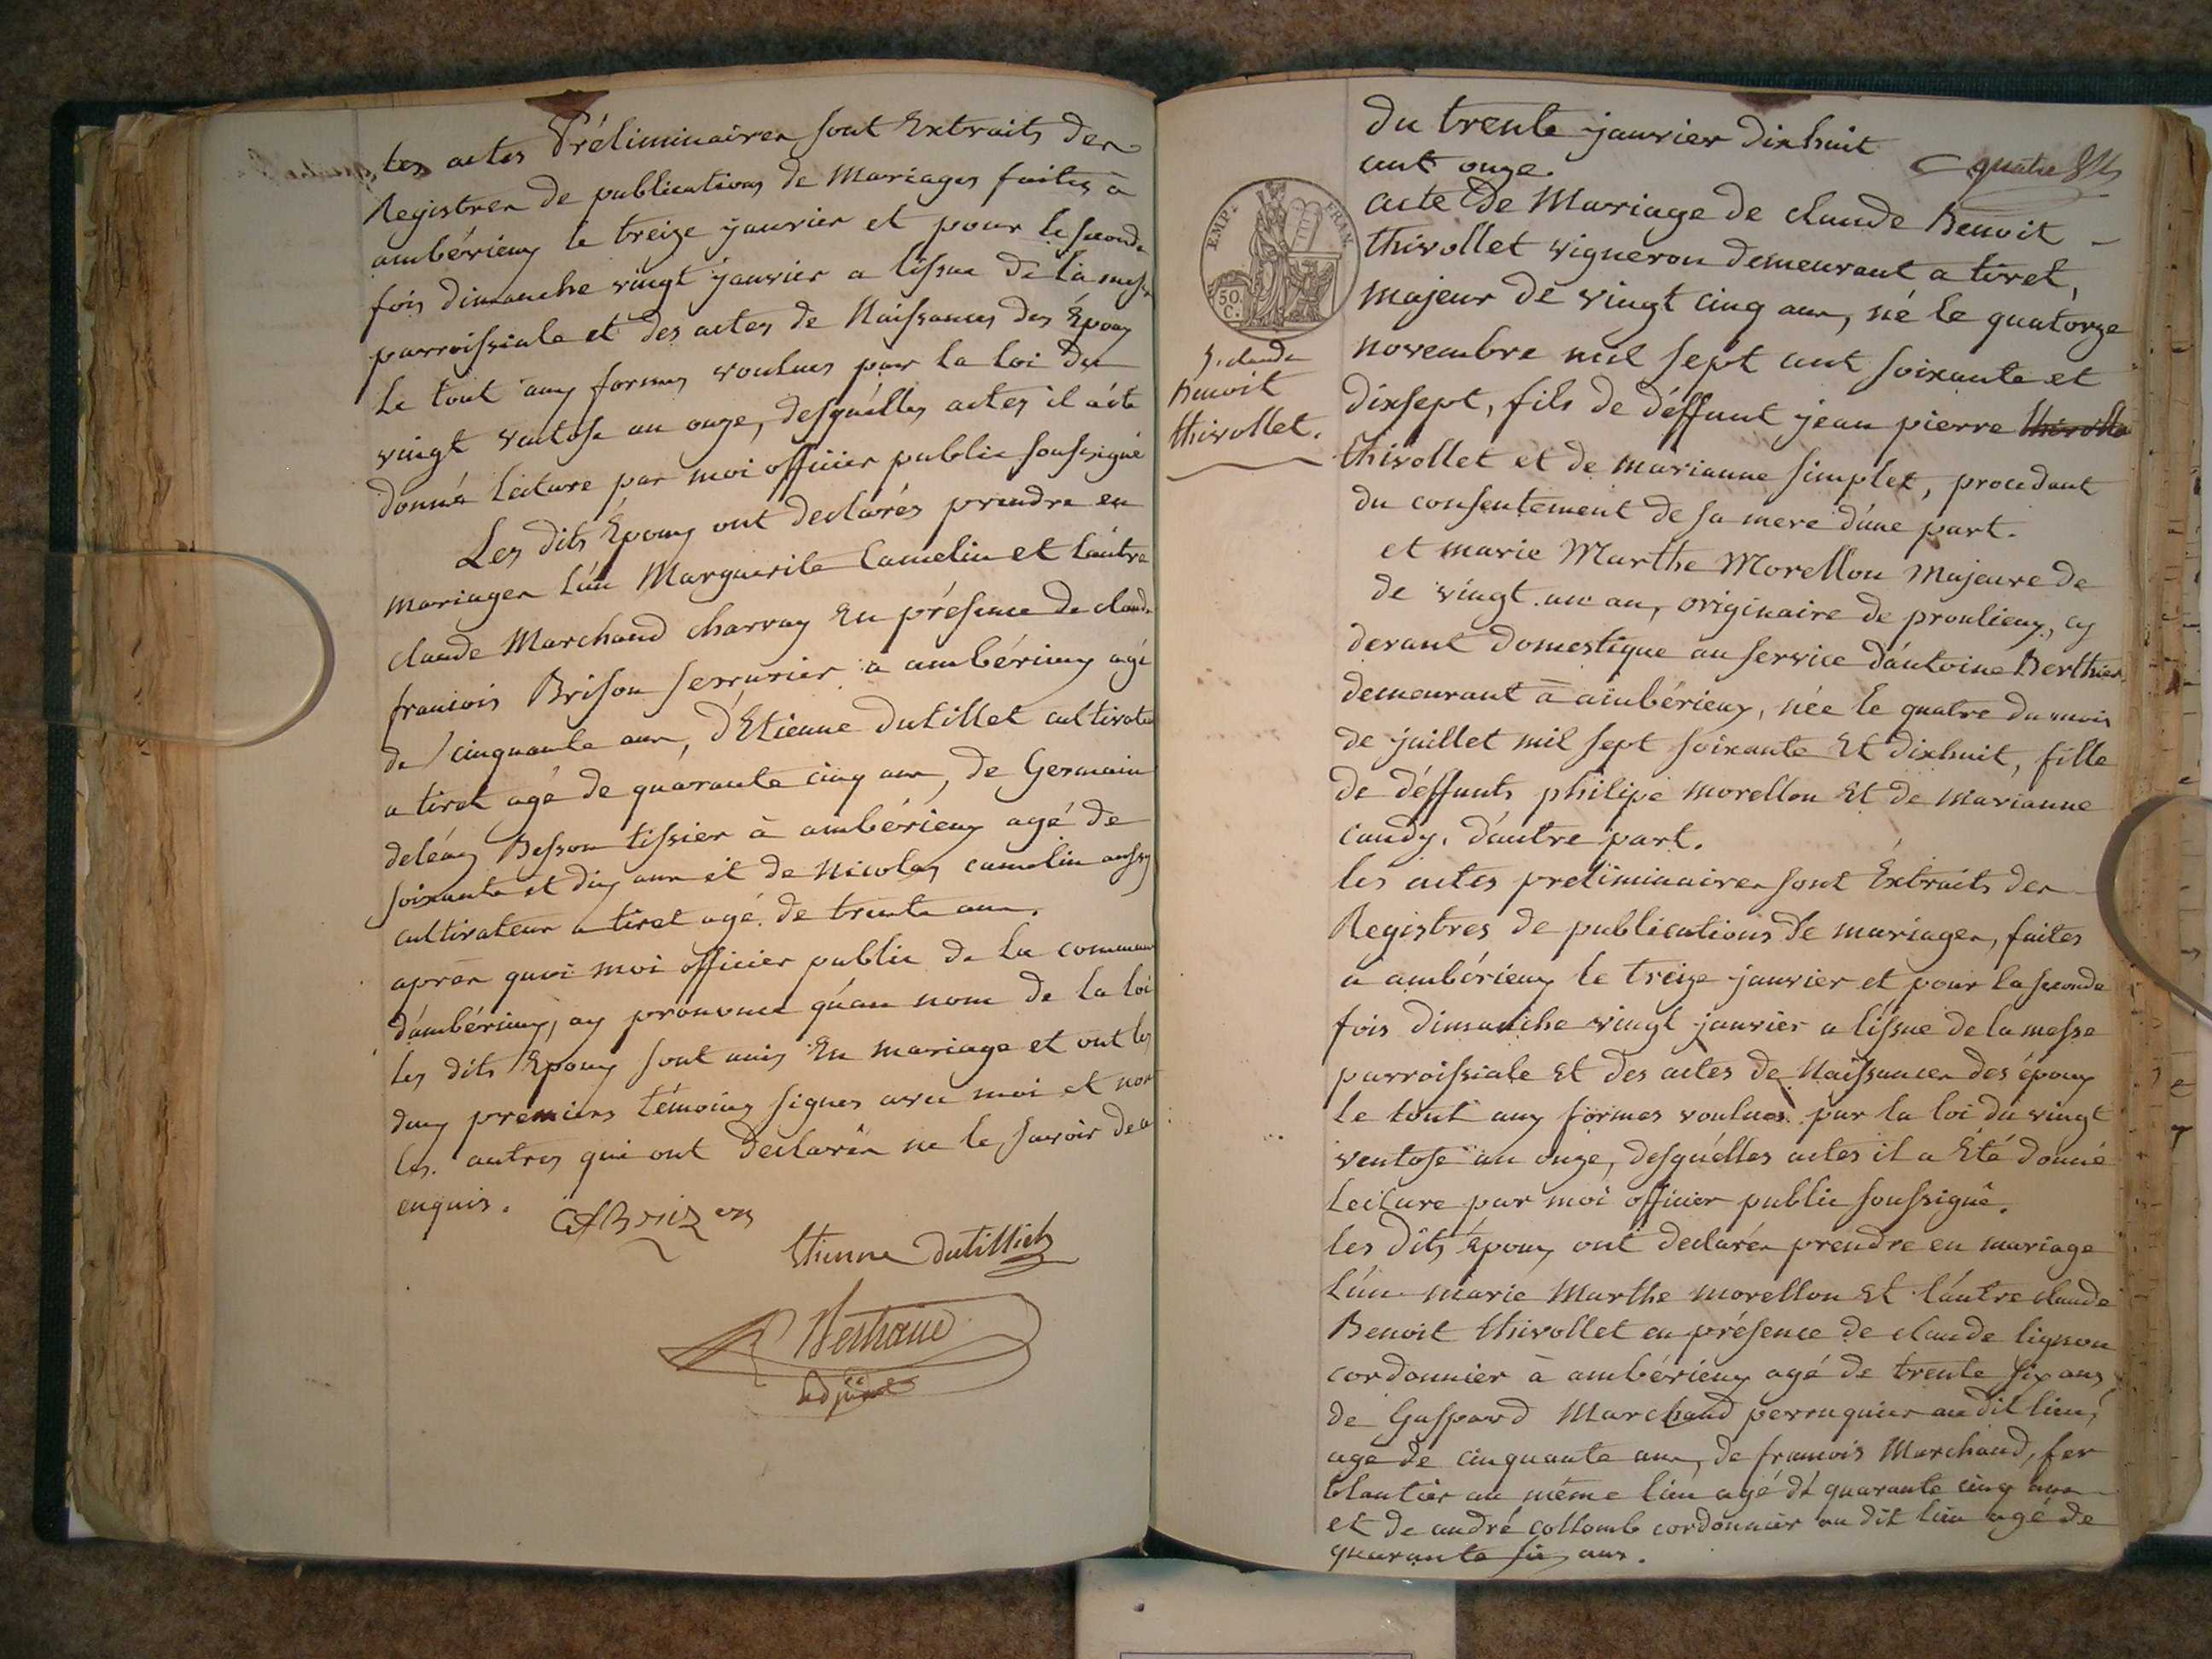 les actes Préliminaires sont Extraits des
Registres de publications de Mariages faites à
ambérieux le treize janvier et pour la seconde
fois dimanche vingt janvier a lissue de la messe
parroissiale et des actes de Naissances des Époux
Le tout aux formes voulues par la loi du
vingt ventose an onze, desquélles actes il a été
donné lecture par moi officier public soussigné
Les dits Époux ont declarés prendre en
mariage L'un Marguerite Camelin et L'autre
claude Marchand charvay En présence de claude
francois Brison serrurier a ambérieux agé
de cinquante ans, d'Etienne dutillet cultivateur
a tiret agé de quarante cinq ans, de Germain
deléaz Besson tissier à ambérieux agé de
soixante et dix ans et de Nicolas camelin aussy
cultivateur a tiret agé de trente ans.
après quoi moi officier public de la commune
d'ambérieux, ay prononcé qu'au nom de la loi
les dits Époux sont unis En mariage et ont les
deux premiers témoins signés avec moi et non
les autres qui ont declarés ne le savoir de ce
enquis.
CfBrizon
Etienne dutillet
adjoint
du trente janvier dixhuit
cent onze.
quatre
acte de Mariage de claude Benoit
thivollet vigneron demeurant a tiret,
majeur de vingt cinq ans, né le quatorze
novembre mil sept cent soixante et
dixsept, fils de déffunt jean pierre thivollet
thivollet et de marianne simplet, procedant
du consentement de sa mere d'une part.
EMP. FRAN.
50 C.
5. claude
Benoit
thivollet.
et marie Marthe Morellon Majeure de
de vingt un an, originaire de proulieux, cy
devant domestique au service d'antoine Berthier
demeurant à ambérieux, née le quatre du mois
de juillet mil sept soixante Et dixhuit, fille
de déffunts philipe morellon Et de Marianne
candy. d'autre part.
les actes preliminaires sont Extraits des
Registres de publications de mariages, faites
a ambérieux le treize janvier et pour la seconde
fois dimanche vingt janvier a lissue de la messe
parroissiale Et des actes de Naissances des époux
Le tout aux formes voulues par la loi du vingt
ventose an onze, desquélles actes il a Eté donné
Lecture par moi officier public soussigné.
les dits Époux ont declarés prendre en mariage
L'un marie Marthe morellon Et l'autre claude
Benoit thivollet en présence de claude lignon
cordonnier à ambérieux agé de trente six ans,
de Gaspard Marchand perruquier au dit lieu,
agé de cinquante ans, de francois Marchand, fer
blantier au même lieu agé de quarante cinq ans
et de andré collomb cordonnier au dit lieu agé de
quarante six ans.